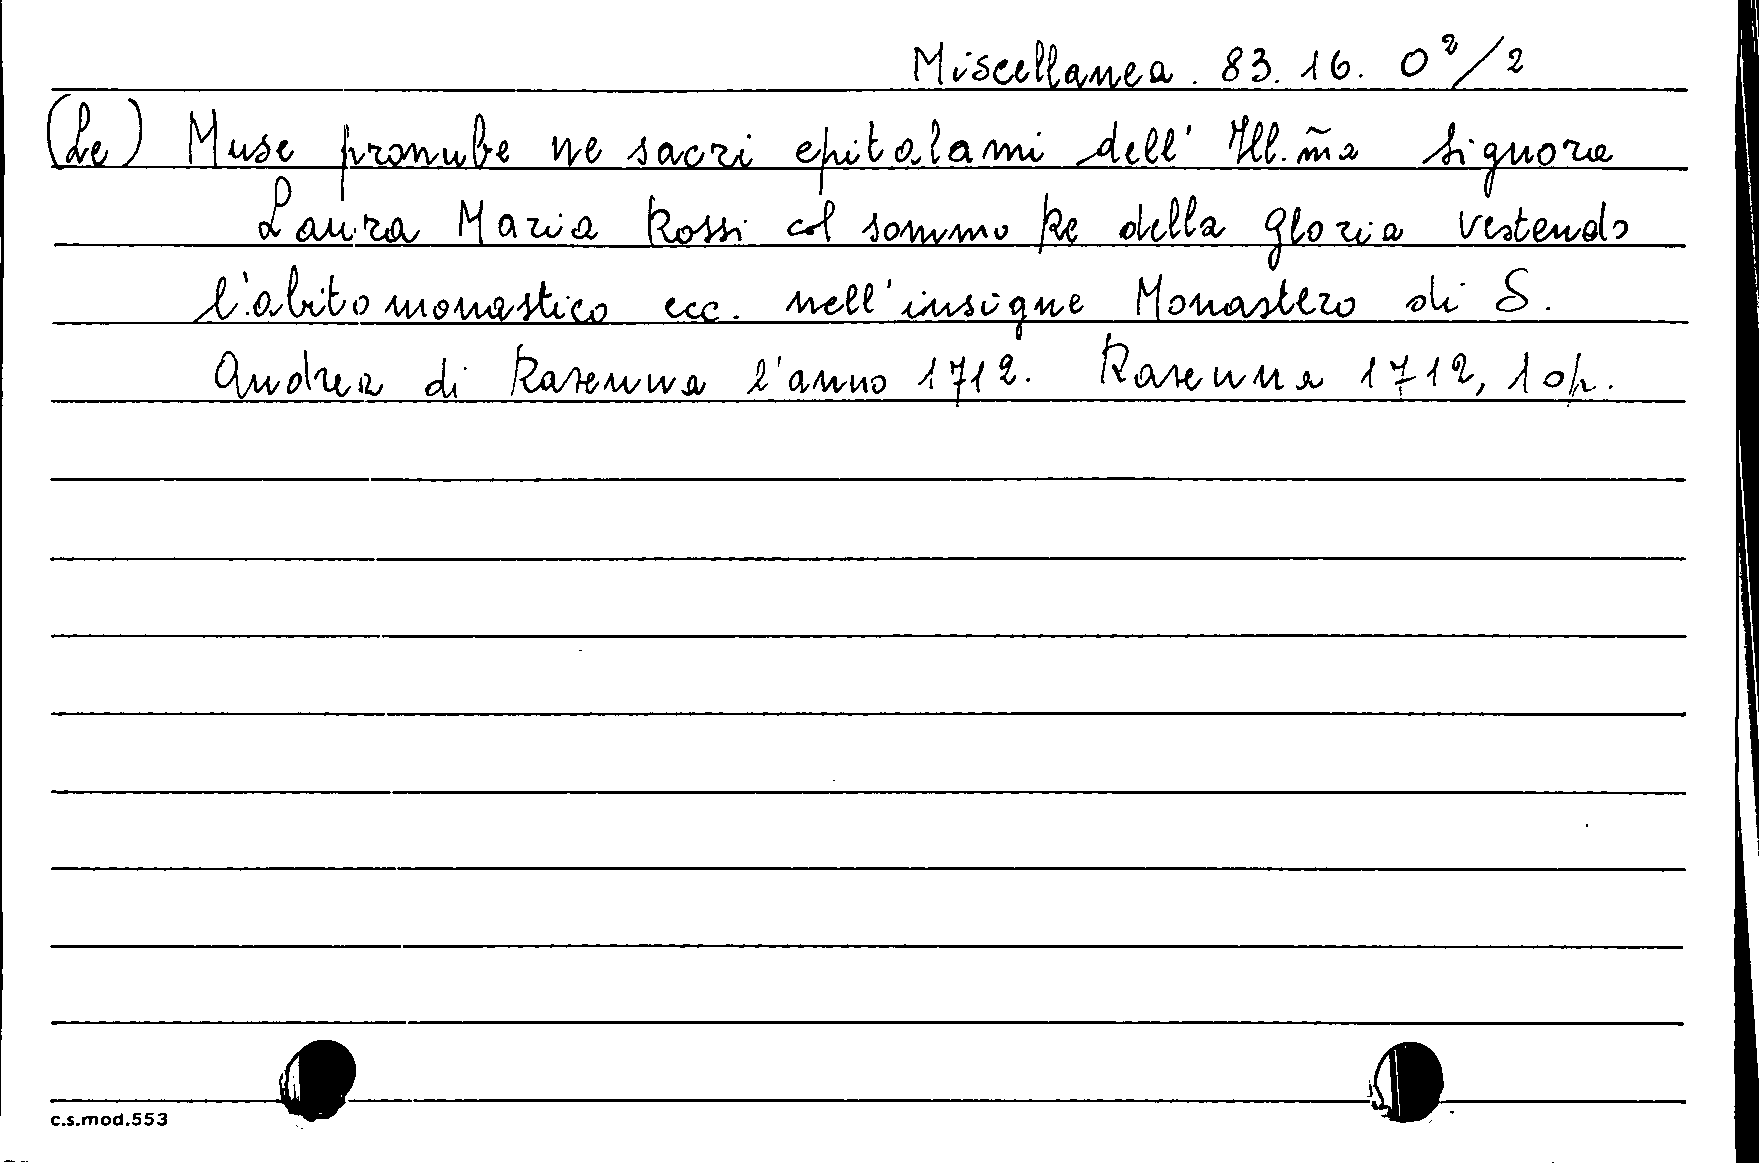 Miscellanea. 83. 16. O²/2
(Le) Muse pronube ne sacri epitalami dell' Ill.m̃a Signora
Laura Maria Rossi col sommo Re della gloria vestendo
l'abito monastico ecc. nell'insigne Monastero di S.
Andrea di Ravenna l'anno 1712. Ravenna 1712, 1 op.
c.s.mod.553